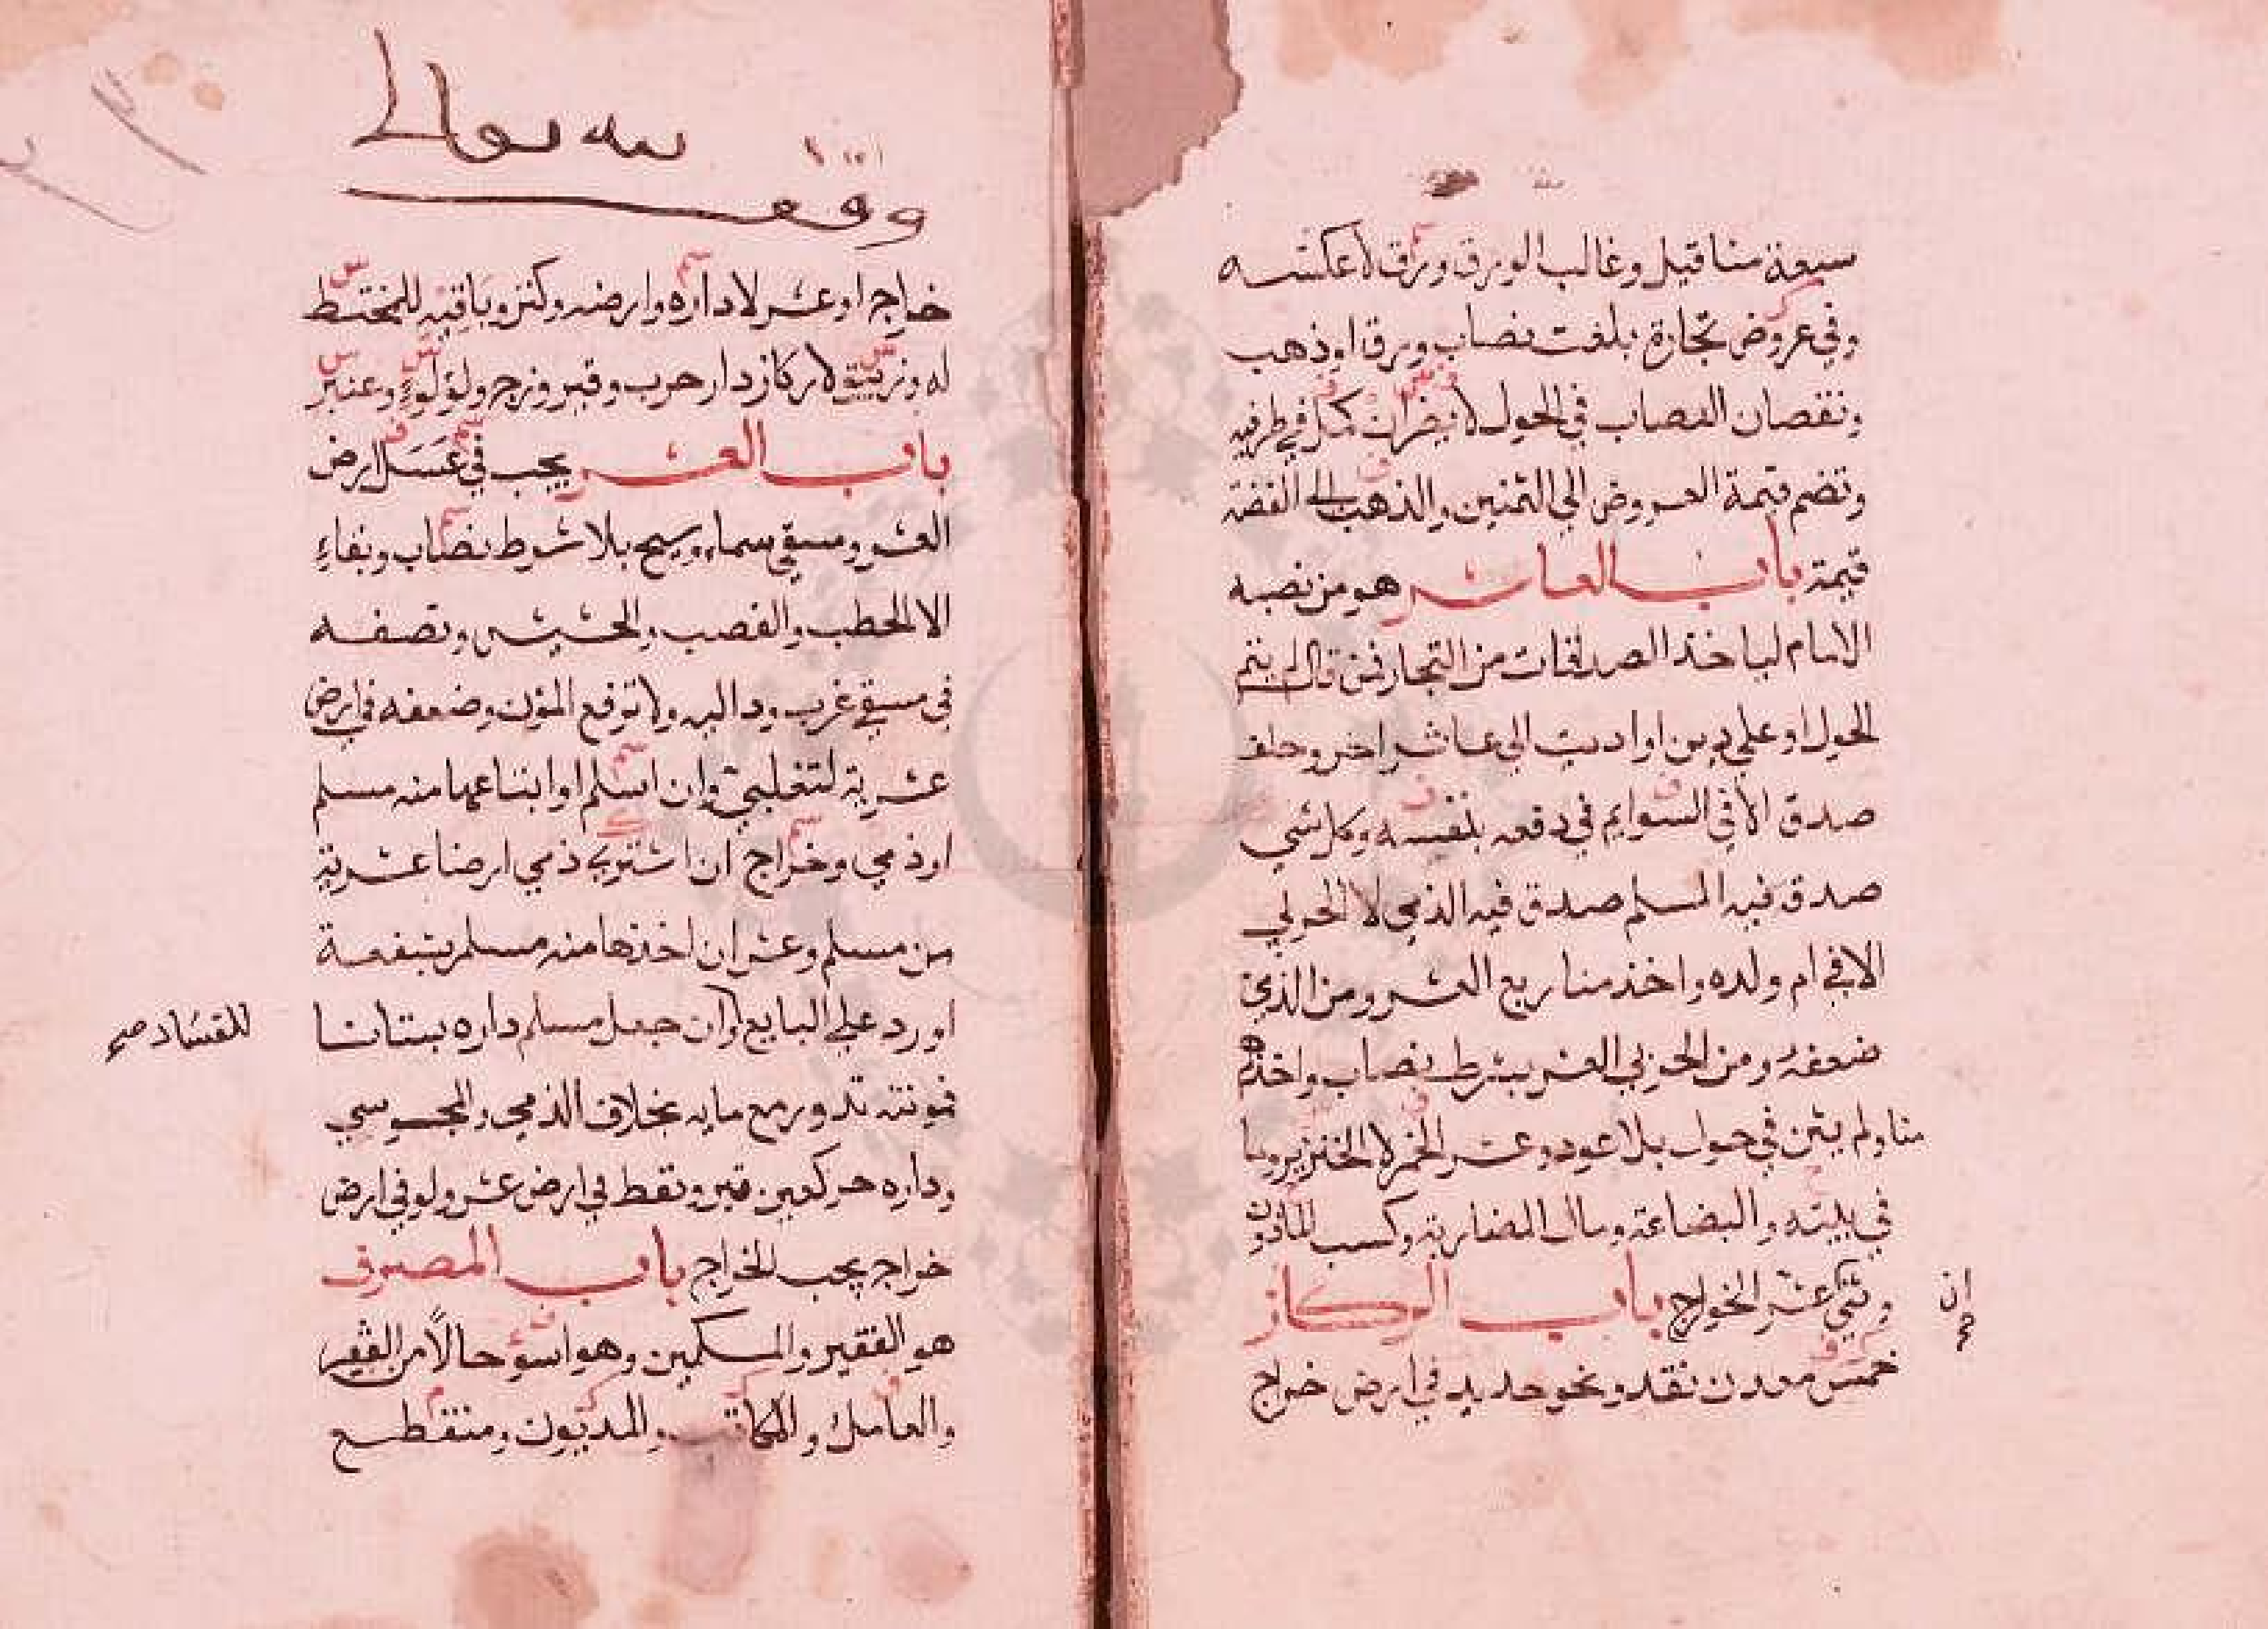 سبعة مثاقيل وغالب الورق ورق لا عكسه
وفي عروض تجارة بلغت نصاب ورق او ذهب
ونقصان النصاب في الحول لا يضر ان كمل في طرفيه
وتضم قيمة العروض الي الثمنين والذهب الي الفضة
قيمة باب العاشر هو من نصبه
الامام لياخذ الصدقات من التجار فمن قال لم يتم
الحول او علي دين او اديت الي عاشر اخر وحلف
صدق الا في السوايم في دفعه بنفسه وكل شي
صدق فيه المسلم صدق فيه الذمي لا الحربي
الا في ام ولده واخذ منا ربع العشر ومن الذمي
ضعفه ومن الحربي العشر بشرط نصاب واخذهم
منا ولم يثن في حول بلا عود وعشر الخمر لا الخنزير وما
في بيته والبضاعة ومال المضاربة وكسب الماذون
وثني عشر الخوارج باب الركاز
ان
خمس معدن نقد ونحو حديد في ارض خراج
وقف
لله تعالى
خراج او عشر لا داره وارضه وكنز وباقيه للمختط
له وزيبق لا ركاز دار حرب وفيروزج ولؤلؤ وعنبر
باب العشر يجب في عسل ارض
العشر ومسقي سماء وسيح بلا شرط نصاب وبقاء
الا الحطب والقصب والحشيش ونصفه
في مسقي غرب ودالية ولا ترفع المؤن وضعفه في ارض
عشرية لتغلبي وان اسلم او ابتاعها منه مسلم
او ذمي وخراج ان اشتري ذمي ارضا عشرية
من مسلم وعشر ان اخذها منه مسلم بشفعة
او رد علي البايع وان جعل مسلم داره بستانا
للفساد صح
فمونته تدور مع مايه بخلاف الذمي والمجوسي
وداره حر كعين قير ونفط في ارض عشر ولو في ارض
خراج يجب الخراج باب المصرف
هو الفقير والمسكين وهو اسوء حالا من الفقير
والعامل والمكاتب والمديون ومنقطع